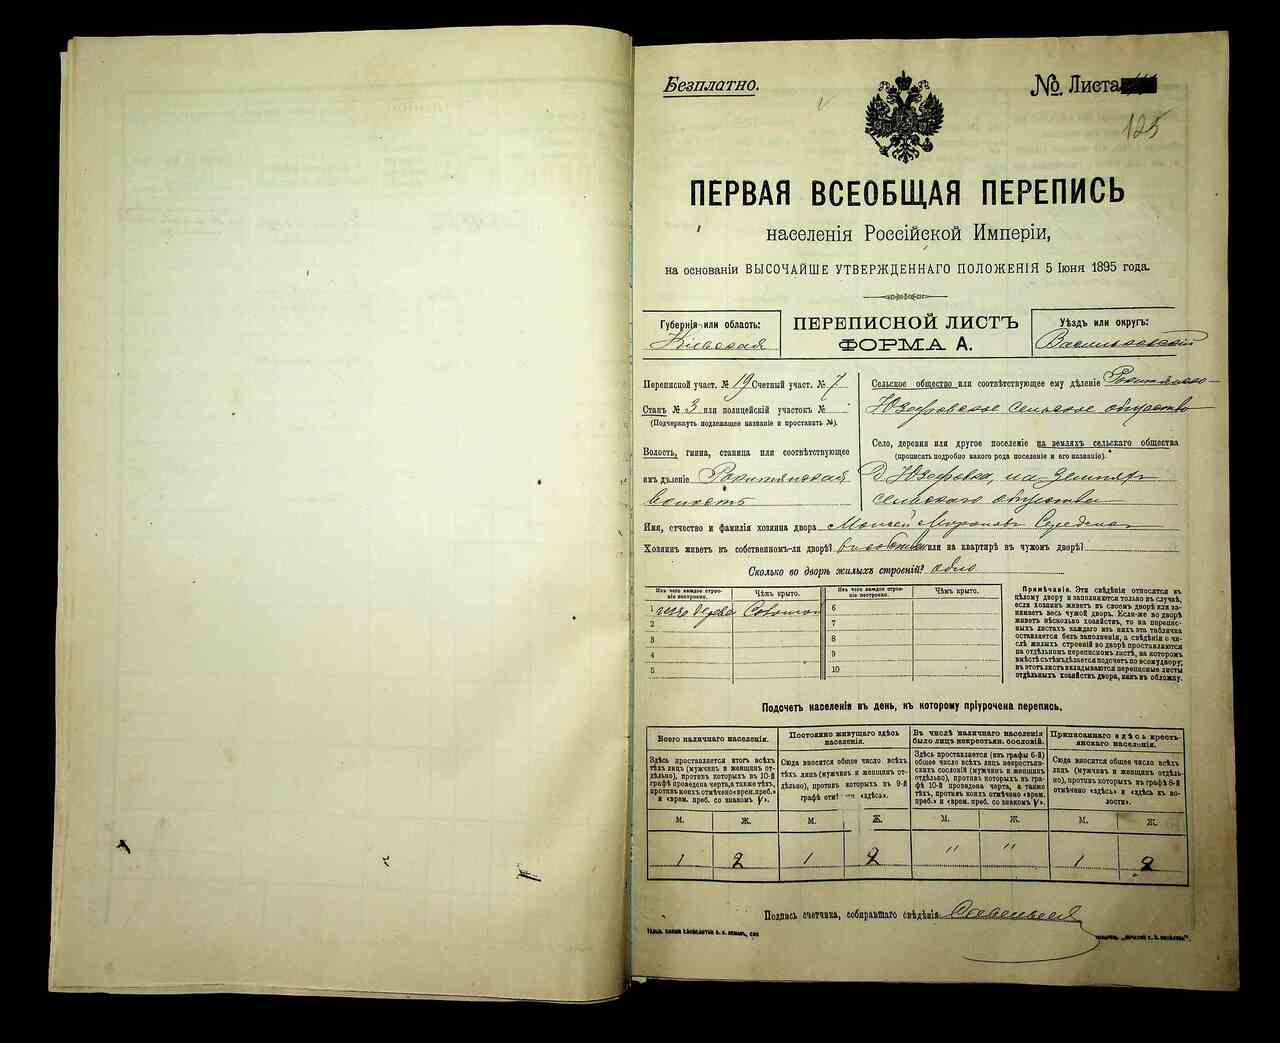 Безплатно.
№ Листа
125
ПЕРВАЯ ВСЕОБЩАЯ ПЕРЕПИСЬ
населенія Россійской Имперіи,
на основаніи ВЫСОЧАЙШЕ УТВЕРЖДЕННАГО ПОЛОЖЕНІЯ 5 Іюня 1895 года.
Губернія или область:
Кіевская
ПЕРЕПИСНОЙ ЛИСТЪ
ФОРМА А.
Уѣздъ или округъ:
Васильковскій
Переписной участ. № 19 Счетный участ. № 7
Станъ № 3 или полицейскій участокъ №
(Подчеркнуть подлежащее названіе и проставить №).
Волость, гмина, станица или соотвѣтствующее
имъ дѣленіе Рокитянская
волость
Сельское общество или соотвѣтствующее ему дѣленіе Рокитянско-
Юзефовское сельское общество
Село, деревня или другое поселеніе на земляхъ сельскаго общества
(прописать подробно какого рода поселеніе и его названіе).
Д. Юзефовка, на земляхъ
сельскаго общества
Имя, отчество и фамилія хозяина двора Моисей Мироновъ
Хозяинъ живетъ въ собственномъ-ли дворѣ? или на квартирѣ въ чужомъ дворѣ?
Сколько во дворѣ жилыхъ строеній? одно
Изъ чего каждое строеніе построено.
Чѣмъ крыто.
Изъ чего каждое строеніе построено.
Чѣмъ крыто.
1 изъ дерева Соломой 6
2 7
3 8
4 9
5 10
Примѣчаніе. Эти свѣдѣнія относятся къ
цѣлому двору и заполняются только въ случаѣ,
если хозяинъ живетъ въ своемъ дворѣ или за-
нимаетъ весь чужой дворъ. Если-же во дворѣ
живетъ нѣсколько хозяйствъ, то на перепис-
ныхъ листахъ каждаго изъ нихъ эта табличка
оставляется безъ заполненія, а свѣдѣнія о чи-
слѣ жилыхъ строеній во дворѣ проставляются
на отдѣльномъ переписномъ листѣ, на которомъ
вмѣстѣ съ тѣмъ дѣлается подсчетъ по всему двору;
въ этотъ листъ вкладываются переписные листы
отдѣльныхъ хозяйствъ двора, какъ въ обложку.
Подсчетъ населенія въ день, къ которому пріурочена перепись.
Всего наличнаго населенія.
Постоянно живущаго здѣсь
населенія.
Въ числѣ наличнаго населенія
было лицъ некрестьян. сословій.
Приписаннаго здѣсь кресть-
янскаго населенія.
Здѣсь проставляется итогъ всѣхъ
тѣхъ лицъ (мужчинъ и женщинъ от-
дѣльно), противъ которыхъ въ 10-й
графѣ проведена черта, а также тѣхъ,
противъ коихъ отмѣчено «врем. преб.»
и «врем. преб. со знакомъ V».
Сюда вносится общее число всѣхъ
тѣхъ лицъ (мужчинъ и женщинъ от-
дѣльно), противъ которыхъ въ 9-й
графѣ «здѣсь».
Здѣсь проставляется (изъ графы 6-й)
общее число всѣхъ лицъ некрестьян-
скихъ сословій (мужчинъ и женщинъ
отдѣльно), противъ которыхъ въ гра-
фѣ 10-й проведена черта, а также
тѣхъ, противъ коихъ отмѣчено «врем.
преб.» и «врем. преб. со знакомъ V».
Сюда вносится общее число всѣхъ
лицъ (мужчинъ и женщинъ отдѣль-
но), противъ которыхъ въ графѣ 8-й
отмѣчено «здѣсь» и «здѣсь въ во-
лости».
М. Ж. М. Ж. М. Ж. М. Ж.
1 2 1 2 " " 1 2
Подпись счетчика, собиравшаго свѣдѣнія